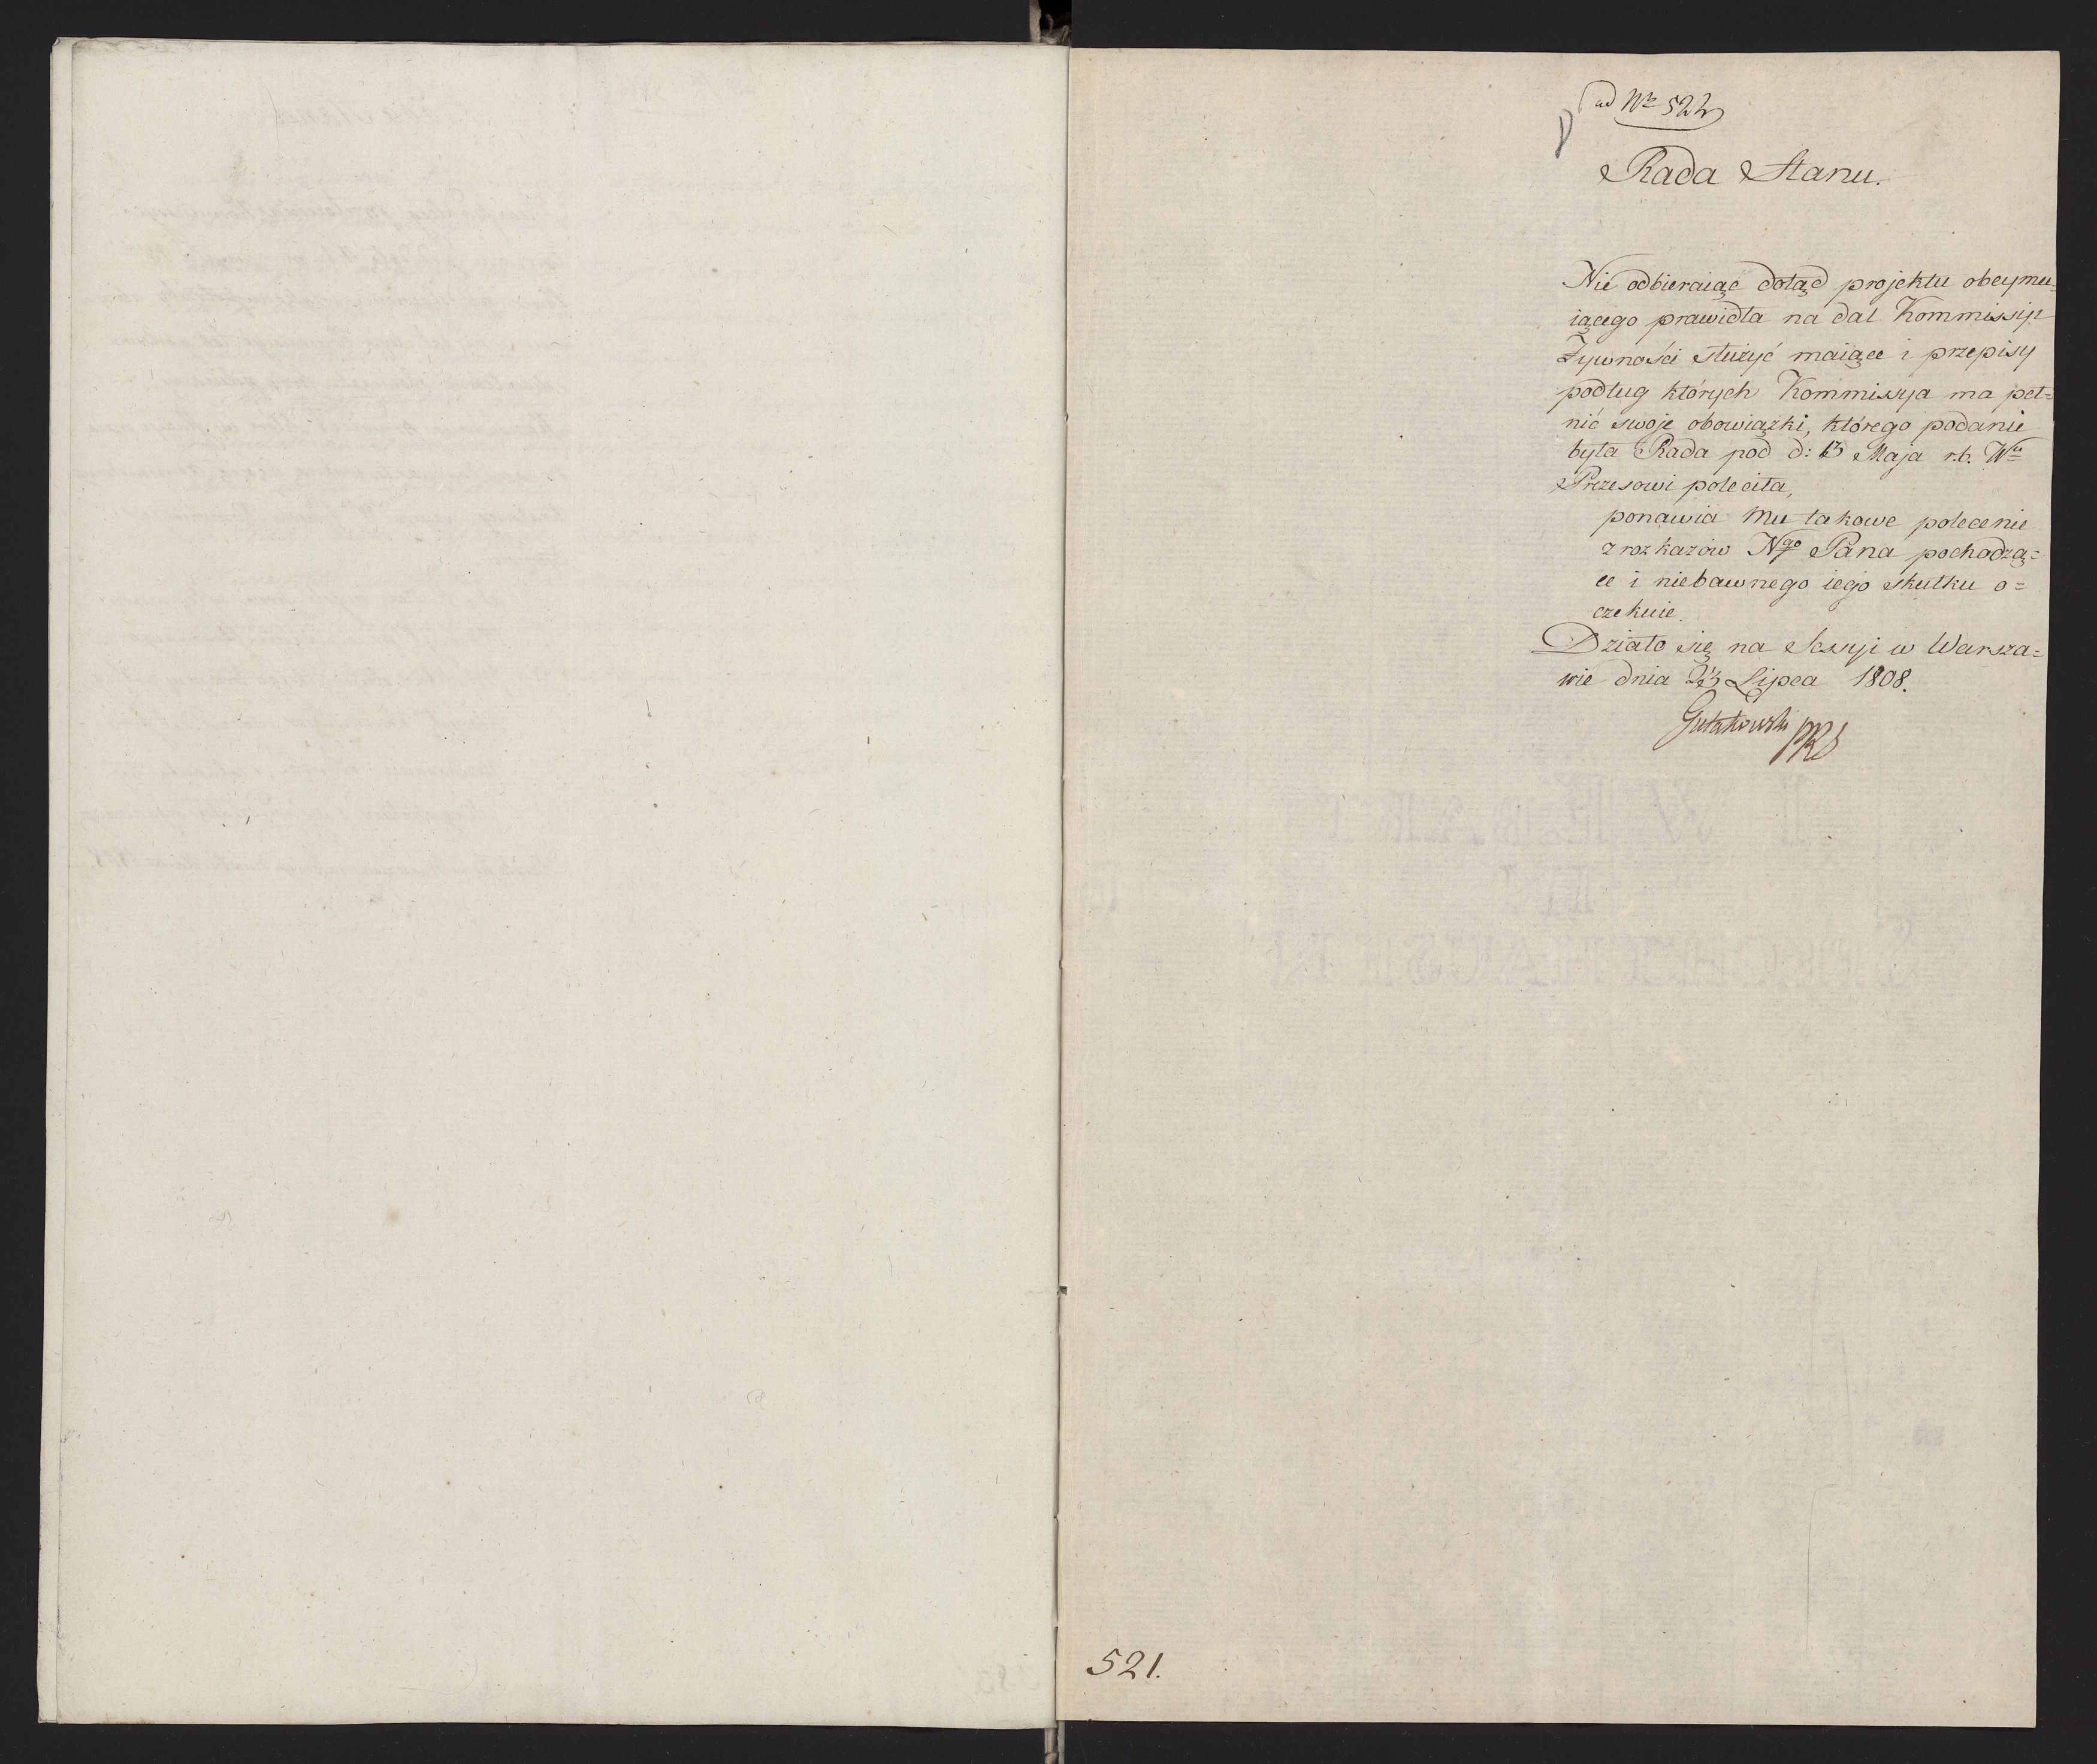 ad Nr 522
Rada Stanu.
Nie odbieraiąc dotąd projektu obeymu=
iącego prawidła na dal Kommissyi
Żywności służyć maiące i przepisy
podług których Kommissya ma peł=
nić swoje obowiązki, którego podanie
była Rada pod d: Maja r.b. Wu
Prezesowi poleciła,
ponawia mu takowe polecenie
z rozkazów Ngo Pana pochodzą=
ce i niebawnego iego skutku o=
czekuie.
Działo się na Sessyi w Warsza=
wie dnia Lipca 1808.
Gutakowski PRS
521.